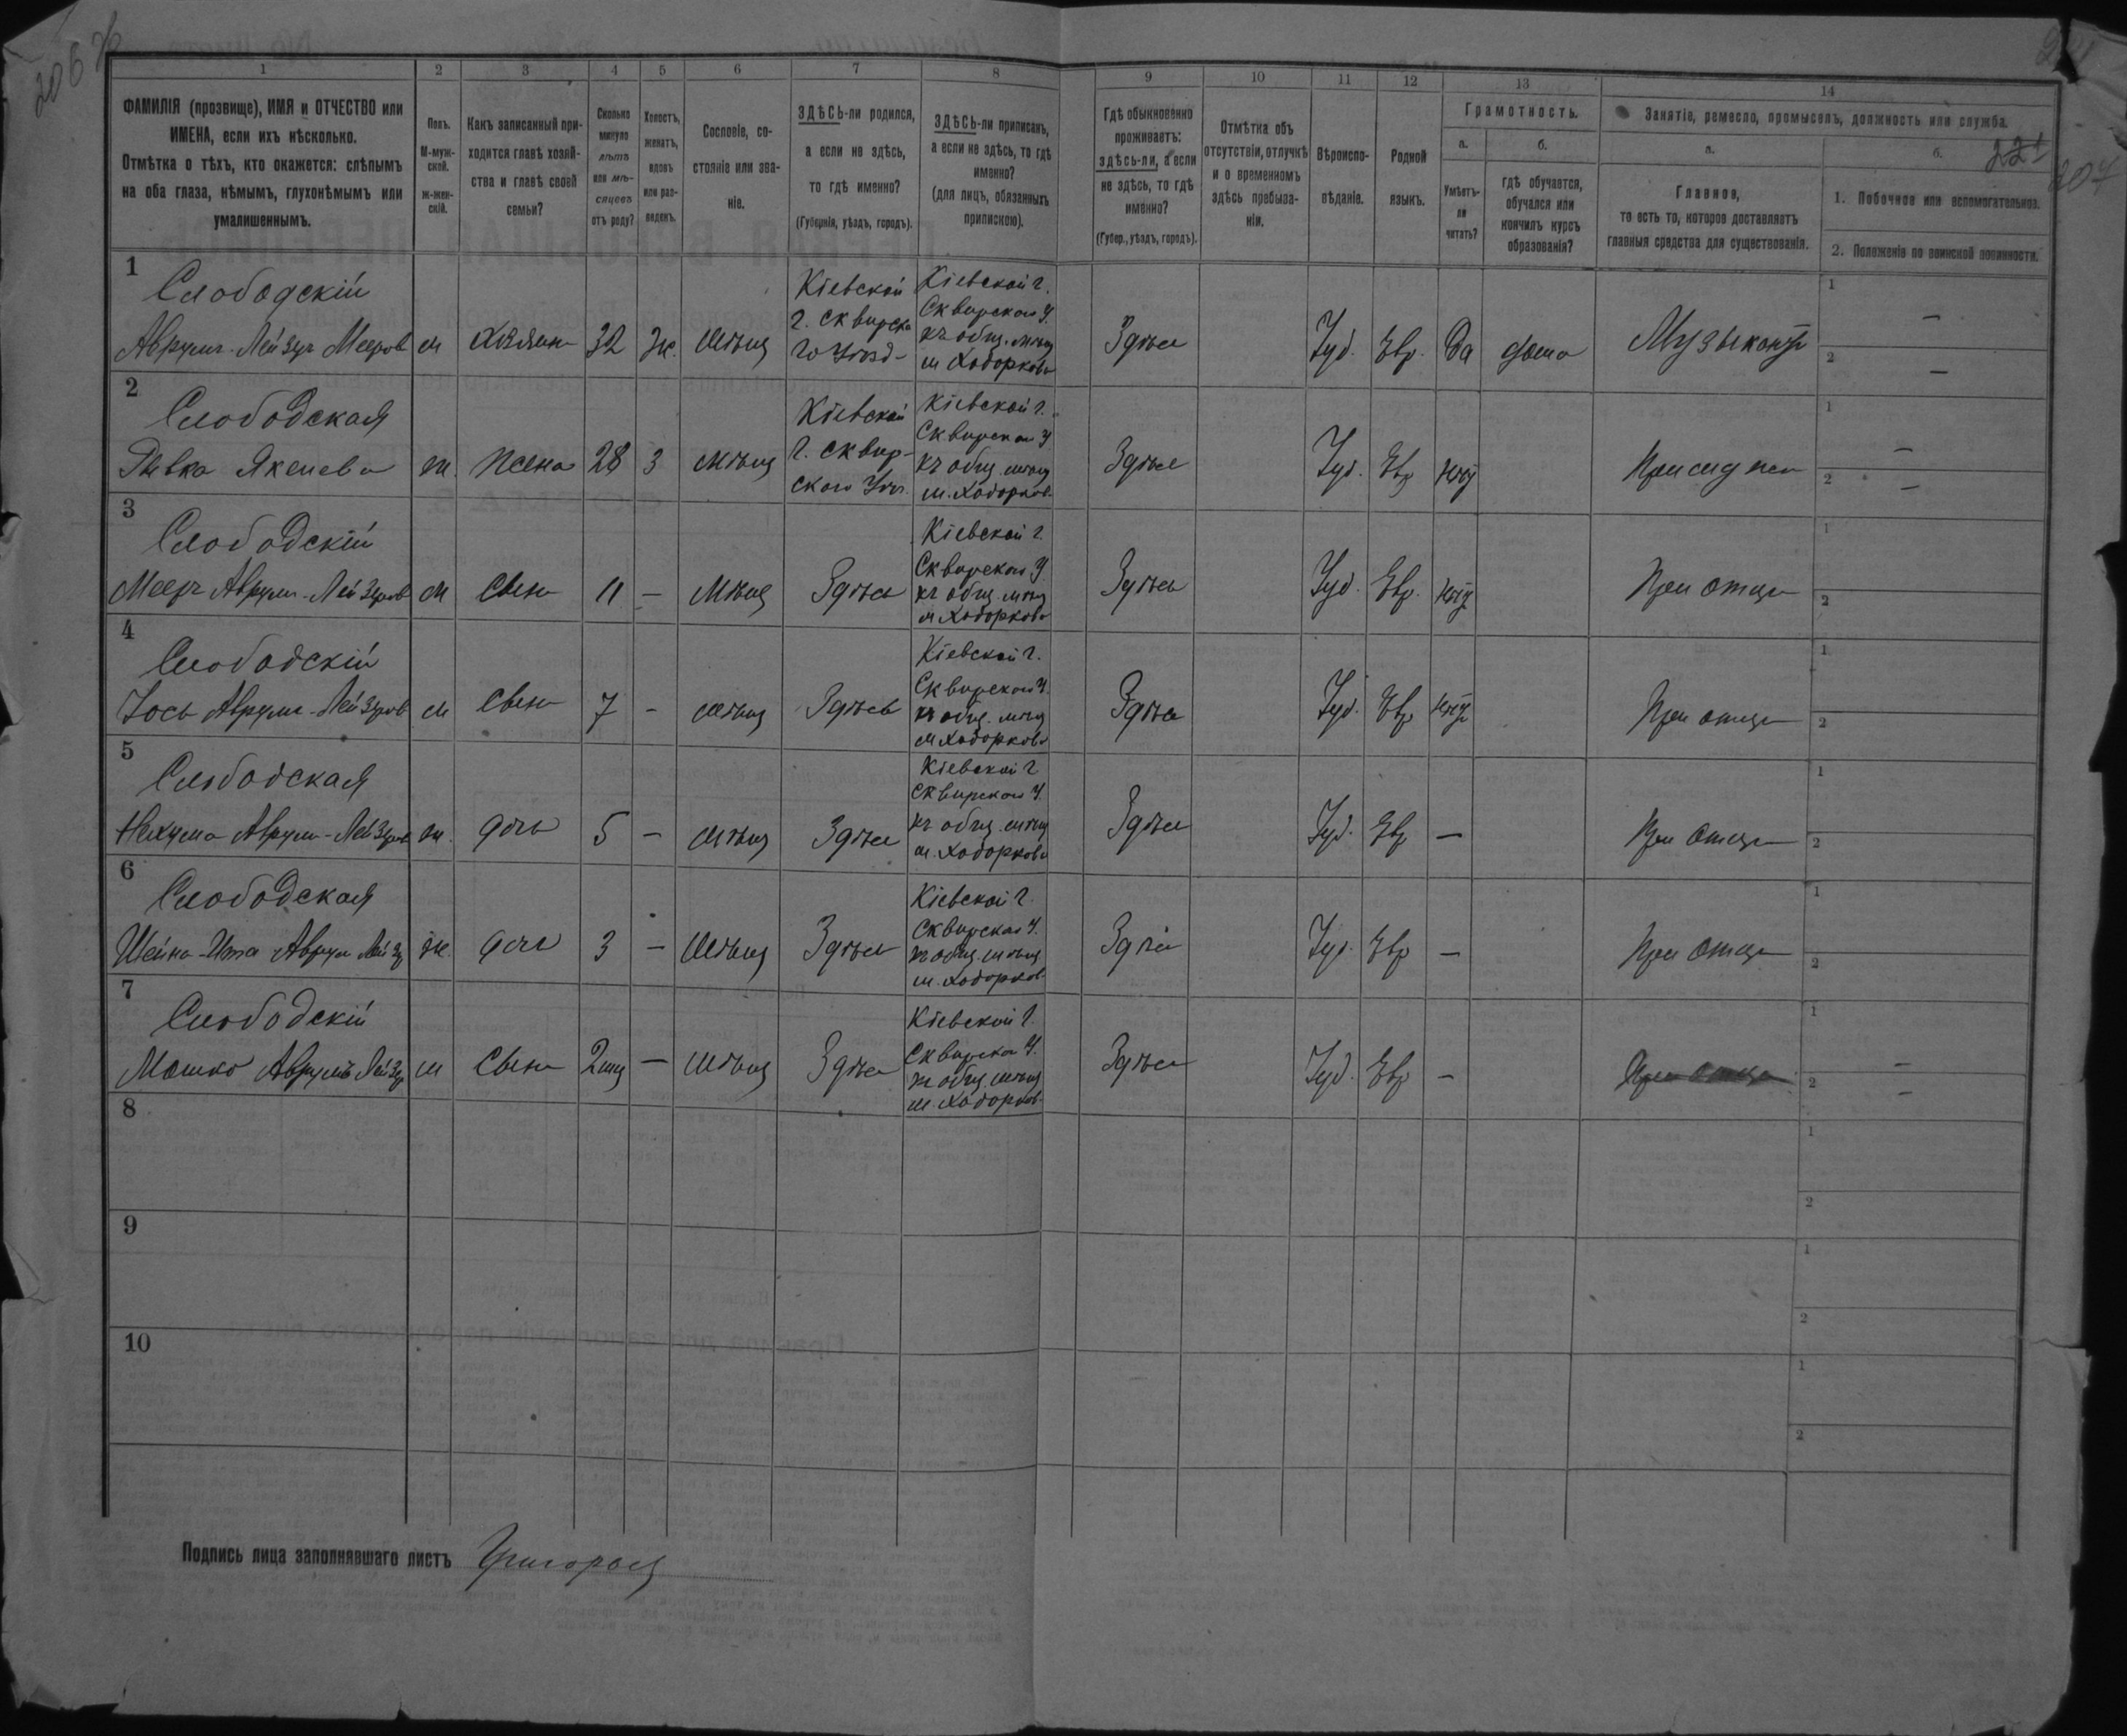 206
221
207
1 2 3 4 5 6 7 8 9 10 11 12 13 14
ФАМИЛІЯ (прозвище), ИМЯ и ОТЧЕСТВО или
ИМЕНА, если ихъ нѣсколько.
Отмѣтка о тѣхъ, кто окажется: слѣпымъ
на оба глаза, нѣмымъ, глухонѣмымъ или
умалишеннымъ.
Полъ.
М-муж-
ской.
ж-жен-
скій.
Какъ записанный при-
ходится главѣ хозяй-
ства и главѣ своей
семьи?
Сколько
минуло
лѣтъ
или мѣ-
сяцевъ
отъ роду?
Холостъ,
женатъ,
вдовъ
или раз-
веденъ.
Сословіе, со-
стояніе или зва-
ніе.
ЗДѢСЬ-ли родился,
а если не здѣсь,
то гдѣ именно?
(Губернія, уѣздъ, городъ).
ЗДѢСЬ-ли приписанъ,
а если не здѣсь, то гдѣ
именно?
(для лицъ, обязанныхъ
припискою).
Гдѣ обыкновенно
проживаетъ:
здѣсь-ли, а если
не здѣсь, то гдѣ
именно?
(Губер., уѣздъ, городъ).
Отмѣтка объ
отсутствіи, отлучкѣ
и о временномъ
здѣсь пребыва-
ніи.
Вѣроиспо-
вѣданіе.
Родной
языкъ.
Грамотность.
а.
Умѣетъ-
ли
читать?
б.
гдѣ обучается,
обучался или
кончилъ курсъ
образованія?
Занятіе, ремесло, промыселъ, должность или служба.
а.
Главное,
то есть то, которое доставляетъ
главныя средства для существованія.
б.
1. Побочное или вспомогательное.
2. Положеніе по воинской повинности.
1
Слободскій
Аврумъ-Лейзеръ Мееров м хозяин 32 Ж. мѣщ
Кіевской
г. Сквирска
го Уѣзд-
Кіевской г.
Сквирскаго У.
къ общ. мѣщ
м Ходоркова
Здѣсь Іуд. Евр. Да дома Музыкантъ
1 —
2 —
2
Слободская
Ривка Якелева ж. жена 28 З мѣщ
Кіевской
г. Сквир-
скаго Уѣз.
Кіевской г.
Сквирскаго У
къ общ. мѣщ
м. Ходорков-
Здѣсь Іуд. Евр нѣт При мужѣ
1 —
2 —
3
Слободскій
Мееръ Аврумъ-Лейзеров м Сын 11 — Мѣщ Здѣсь
Кіевской г.
Сквирскаго У.
къ общ. мѣщ
м Ходоркова
Здѣсь Іуд. Евр. нѣт При отцѣ
1
2
4
Слободскій
Іось Аврумъ-Лейзеров м Сын 7 - мѣщ Здѣсь
Кіевской г.
Сквирскаго У.
къ общ. мѣщ
м Ходоркова
Здѣсь Іуд. Евр нѣт При отцѣ
1
2
5
Слободская
Нехума Аврум-Лейзеров ж. дочь 5 — мѣщ Здѣсь
Кіевской г
Сквирскаго У.
къ общ. мѣщ
м. Ходоркова
Здѣсь Іуд. Евр — При отцѣ
1
2
6
Слободская
Шейна-Ита Аврум Лейз ж. дочь 3 — мѣщ Здѣсь
Кіевской г.
Сквирскаго У.
къ общ. мѣщ
м. Ходорков-
Здѣсь Іуд. Евр — При отцѣ
1
2
7
Слободскій
Мошко Аврумъ Лейзер м Сын 2 мѣ — мѣщ Здѣсь
Кіевской г.
Сквирскаго У.
къ общ. мѣщ
м. Ходорков-
Здѣсь Іуд. Евр — При отцѣ
1 —
2 —
8
1
2
9
1
2
10
1
2
Подпись лица заполнявшаго листъ